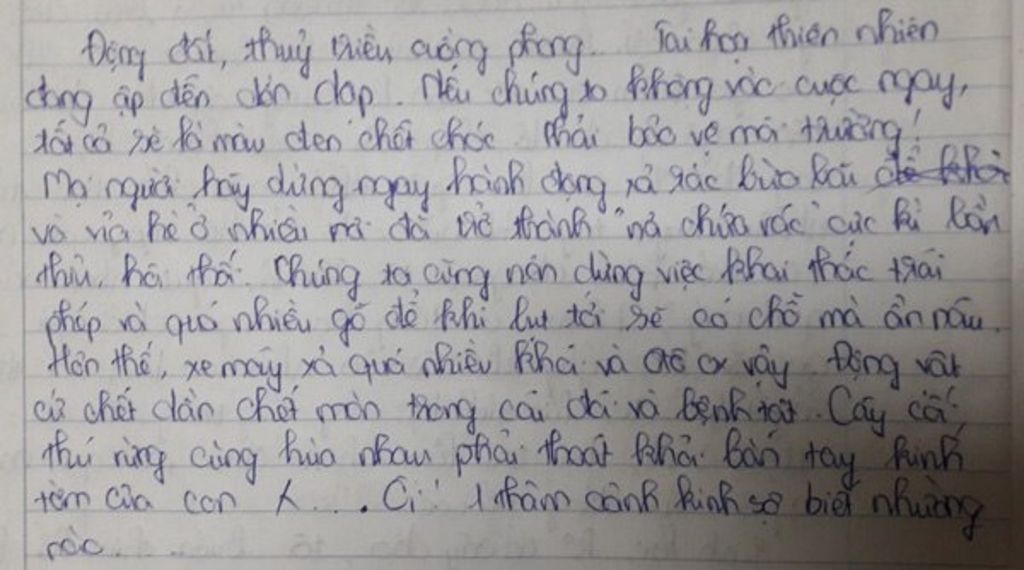 Động đất, thuỷ triều cuồng phong... Tai hoạ thiên nhiên
đang ập đến dồn dập. Nếu chúng ta không vác cuộc ngay,
tất cả sẽ là màu đen chết chóc. Phải bảo vệ môi trường!
Mọi người hãy dừng ngay hành động xả rác bừa bãi
và vỉa hè ở nhiều nơi đã trở thành "nơi chứa rác" cực kì bẩn
thỉu, hôi thối. Chúng ta cũng nên dừng việc khai thác trái
phép và quá nhiều gỗ để khi lụt tới sẽ có chỗ mà ẩn náu.
Hơn thế, xe máy xả quá nhiều khói và ôtô cx vậy. Động vật
cứ chết dần chết mòn trong cái đói và bệnh tật. Cây cối,
thú rừng cùng hùa nhau phải thoát khỏi bàn tay kinh
tởm của con ... Ôi! 1 thảm cảnh kinh sợ biết nhường
nào.